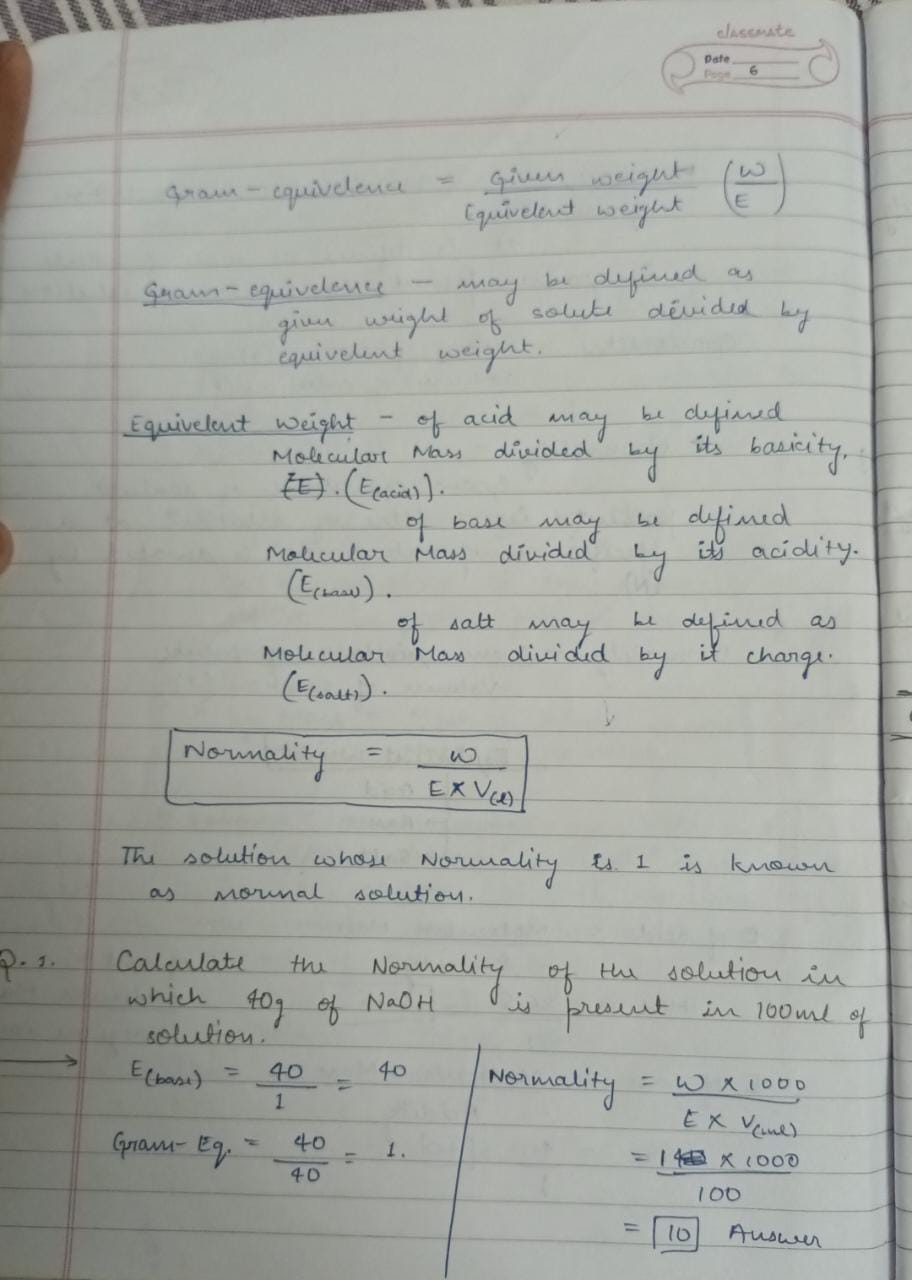 classmate
Date
Page 6
Gram-equivelence = Given weight / Equivelent weight (W/E)
Gram-equivelence - may be defined as
given weight of solute divided by
equivelent weight.
Equivelent weight - of acid may be defined
Molecular Mass divided by its basicity.
(E). (E(acid)).
of base may be defined
Molecular Mass divided by its acidity.
(E(base)).
of salt may be defined as
Molecular Mass divided by it charge.
(E(salt)).
Normality = W / E X V(l)
The solution whose Normality is 1 is known
as normal solution.
Q.1. Calculate the Normality of the solution in
which 40g of NaOH is present in 100ml of
solution.
E(base) = 40/1 = 40
Gram-Eq. = 40/40 = 1.
Normality = W X 1000 / E X V(ml)
= 1 X 1000 / 100
= 10 Answer